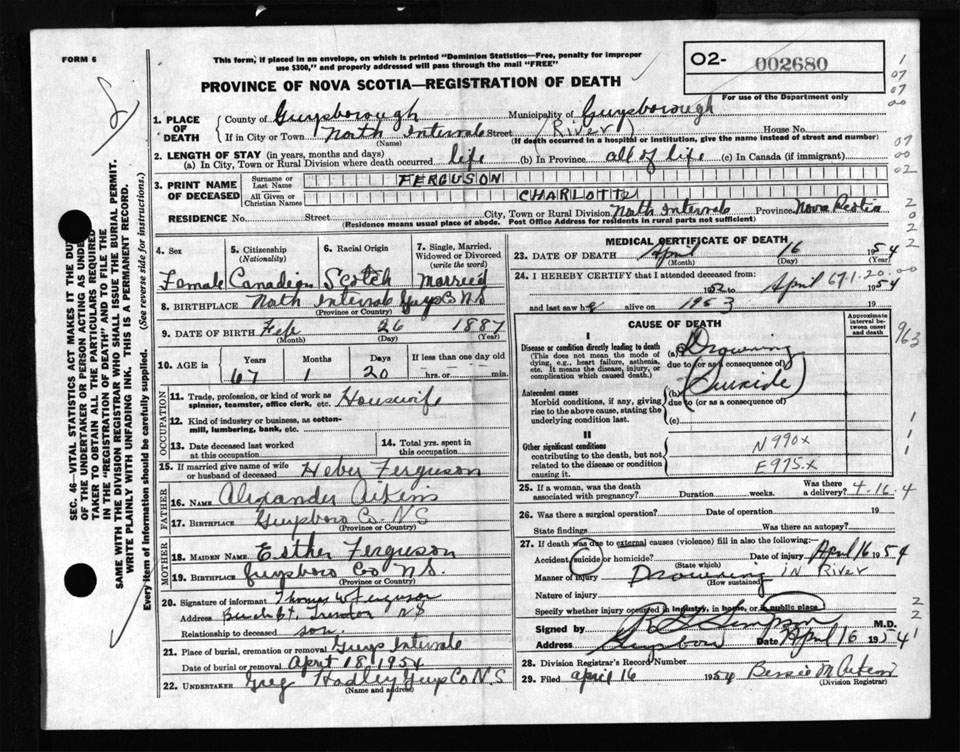 FORM 6
This form, if placed in an envelope, on which is printed "Dominion Statistics—Free, penalty for improper
use $300," and properly addressed will pass through the mail "FREE"
O2- 002680
For use of the Department only
PROVINCE OF NOVA SCOTIA—REGISTRATION OF DEATH
1. PLACE OF DEATH
County of Guysborough Municipality of Guysborough
If in City or Town North Intervale Street (River) House No.
(Name) (If death occurred in a hospital or institution, give the name instead of street and number)
2. LENGTH OF STAY (in years, months and days)
(a) In City, Town or Rural Division where death occurred life (b) In Province all of life (c) In Canada (if immigrant)
3. PRINT NAME OF DECEASED
Surname or Last Name FERGUSON
All Given or Christian Names CHARLOTTE
RESIDENCE No. Street City, Town or Rural Division North Intervale Province Nova Scotia
(Residence means usual place of abode. Post Office Address for residents in rural parts not sufficient)
4. Sex
Female
5. Citizenship (Nationality)
Canadian
6. Racial Origin
Scotch
7. Single, Married, Widowed or Divorced (write the word)
Married
8. BIRTHPLACE North Intervale Guys Co N.S
(Province or Country)
9. DATE OF BIRTH Feb 26 1887
(Month) (Day) (Years)
10. AGE in Years Months Days If less than one day old
67 1 20 hrs. or min.
OCCUPATION
11. Trade, profession, or kind of work as spinner, teamster, office clerk, etc. Housewife
12. Kind of industry or business, as cotton-mill, lumbering, bank, etc.
13. Date deceased last worked at this occupation
14. Total yrs. spent in this occupation
15. If married give name of wife or husband of deceased Heber Ferguson
FATHER
16. NAME Alexander Aikens
17. BIRTHPLACE Guysboro Co. N S
(Province or Country)
MOTHER
18. MAIDEN NAME Esther Ferguson
19. BIRTHPLACE Guysboro Co N.S.
(Province or Country)
20. Signature of informant Thomas W Ferguson
Address N S
Relationship to deceased son
21. Place of burial, cremation or removal Guys Intervale
Date of burial or removal April 18 1954
22. UNDERTAKER Greg Hadley Guys Co N S
(Name and address)
MEDICAL CERTIFICATE OF DEATH
23. DATE OF DEATH April 16 1954
(Month) (Day) (Year)
24. I HEREBY CERTIFY that I attended deceased from:
to April 1954
and last saw h alive on 1953 19
CAUSE OF DEATH
Approximate interval between onset and death
I
Disease or condition directly leading to death
(This does not mean the mode of dying, e.g., heart failure, asthenia, etc. It means the disease, injury, or complication which caused death.)
(a) Drowning
due to (or as a consequence of)
Antecedent causes
Morbid conditions, if any, giving rise to the above cause, stating the underlying condition last.
(b) (Suicide)
due to (or as a consequence of)
(c)
II
Other significant conditions
contributing to the death, but not related to the disease or condition causing it.
N990X
E975X
25. If a woman, was the death associated with pregnancy? Duration weeks. Was there a delivery? 4-16-4
26. Was there a surgical operation? Date of operation 19
State findings Was there an autopsy?
27. If death was due to external causes (violence) fill in also the following:
Accident, suicide or homicide? Date of injury April 16 1954
(State which)
Manner of injury Drowning IN River
(How sustained)
Nature of injury
Specify whether injury occurred in industry, in home, or in public place
Signed by Simpson M.D.
Address Guysboro Date April 16 1954
28. Division Registrar's Record Number
29. Filed April 16 1954 Bessie M Aikens
(Division Registrar)
SEC. 46—VITAL STATISTICS ACT MAKES IT THE DUTY
OF THE UNDERTAKER OR PERSON ACTING AS UNDER-
TAKER TO OBTAIN ALL THE PARTICULARS REQUIRED
IN THE "REGISTRATION OF DEATH" AND TO FILE THE
SAME WITH THE DIVISION REGISTRAR WHO SHALL ISSUE THE BURIAL PERMIT.
WRITE PLAINLY WITH UNFADING INK. THIS IS A PERMANENT RECORD.
Every item of information should be carefully supplied. (See reverse side for instructions.)
1
07
07
00
07
00
02
2
0
2
2
963
1
1
1
2
2
1